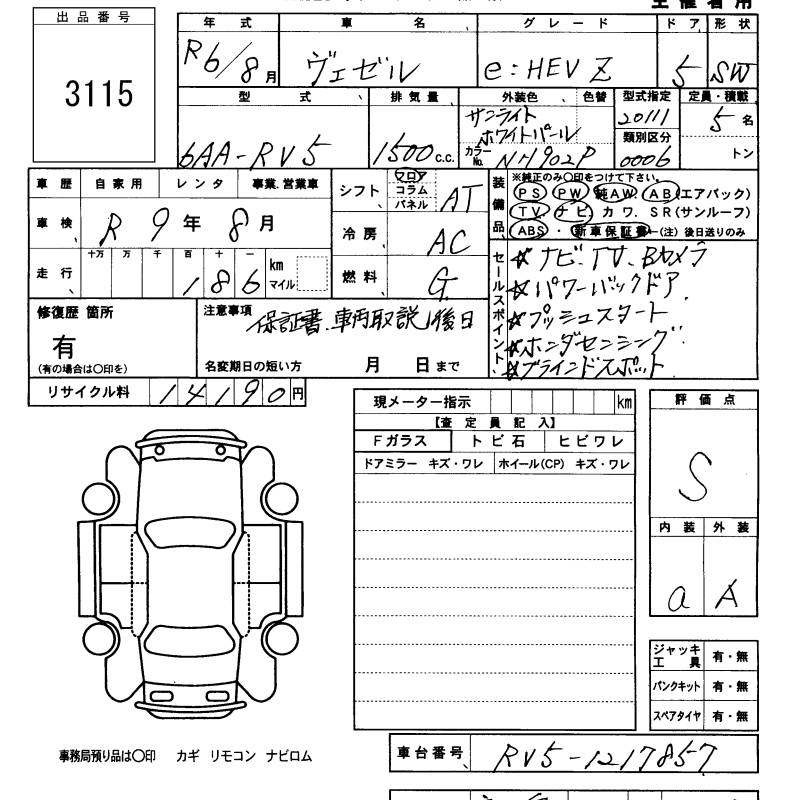 主 催 者 用
出 品 番 号
3115
年 式
R6/8月
車 名
ヴェゼル
グ レ ー ド
e:HEV Z
ド ア
5
形 状
SW
型 式
6AA-RV5
排 気 量
1500c.c.
外装色
色替
サンライト
ホワイトパール
カラーNo.
NH902P
型式指定
20111
類別区分
0006
定員・積載
5名
トン
車 歴
自 家 用
レ ン タ
事業.営業車
車 検
R 9 年 8 月
走 行
十万 万 千 百 十 一
186
km
マイル
シフト
フロア
コラム
パネル
AT
冷 房
AC
燃 料
G
装備品
※純正のみ〇印をつけて下さい。
PS PW 純AW. AB(エアバック)
TV ナビ カ ワ. SR(サンルーフ)
ABS ・ 新車保証書 ー(注) 後日送りのみ
セールスポイント
☆ ナビ.TV.Bカメラ
☆パワーバックドア
☆プッシュスタート
☆ホンダセンシング
☆ブラインドスポット
修復歴 箇所
有
(有の場合は〇印を)
注意事項
保証書.車両取説 後日
名変期日の短い方 月 日まで
リサイクル料
14190円
現メーター指示
km
【 査 定 員 記 入 】
Fガラス
ト ビ 石
ヒ ビ ワ レ
ドアミラー キズ・ワレ
ホイール(CP) キズ・ワレ
評 価 点
S
内 装
外 装
a
A
ジャッキ
工 具
有・無
パンクキット
有・無
スペアタイヤ
有・無
事務局預り品は〇印 カギ リモコン ナビロム
車台番号
RV5-1217857